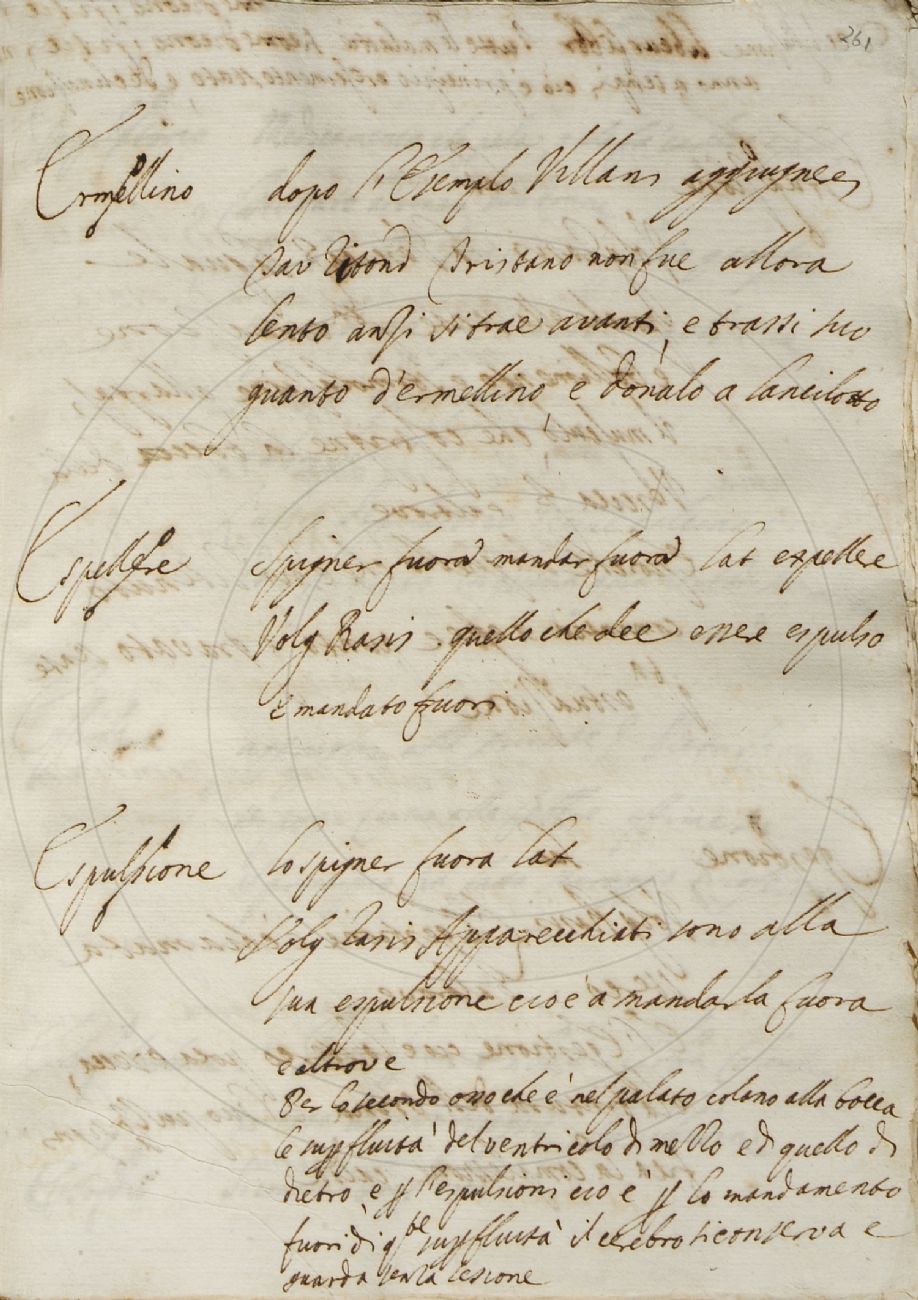 261
Ermellino dopo l'Esemplo Villani aggiugnere,
Tav Ritond Tristano non fue allora
lento anzi si trae avanti, e trassi suo
guanto d'ermellino, e dònalo a Lancilotto
Espellere Spigner fuora mandar fuora Lat expellere
Volg Rasis quello che dee essere espulso
e mandato fuori
Espulsione Lo spigner fuora Lat
Volg Rasis Apparecchiati sono alla
sua espulsione cioè a mandarla fuora
e altrove
Per lo secondo osso che è nel palato colano alla bocca
le supfluità del ventricolo di mezzo e di quello di
dietro, e p l'espulsioni cio è p lo mandamento
fuori di qste supfluità il cerebro si conserva e
guarda senza lesione